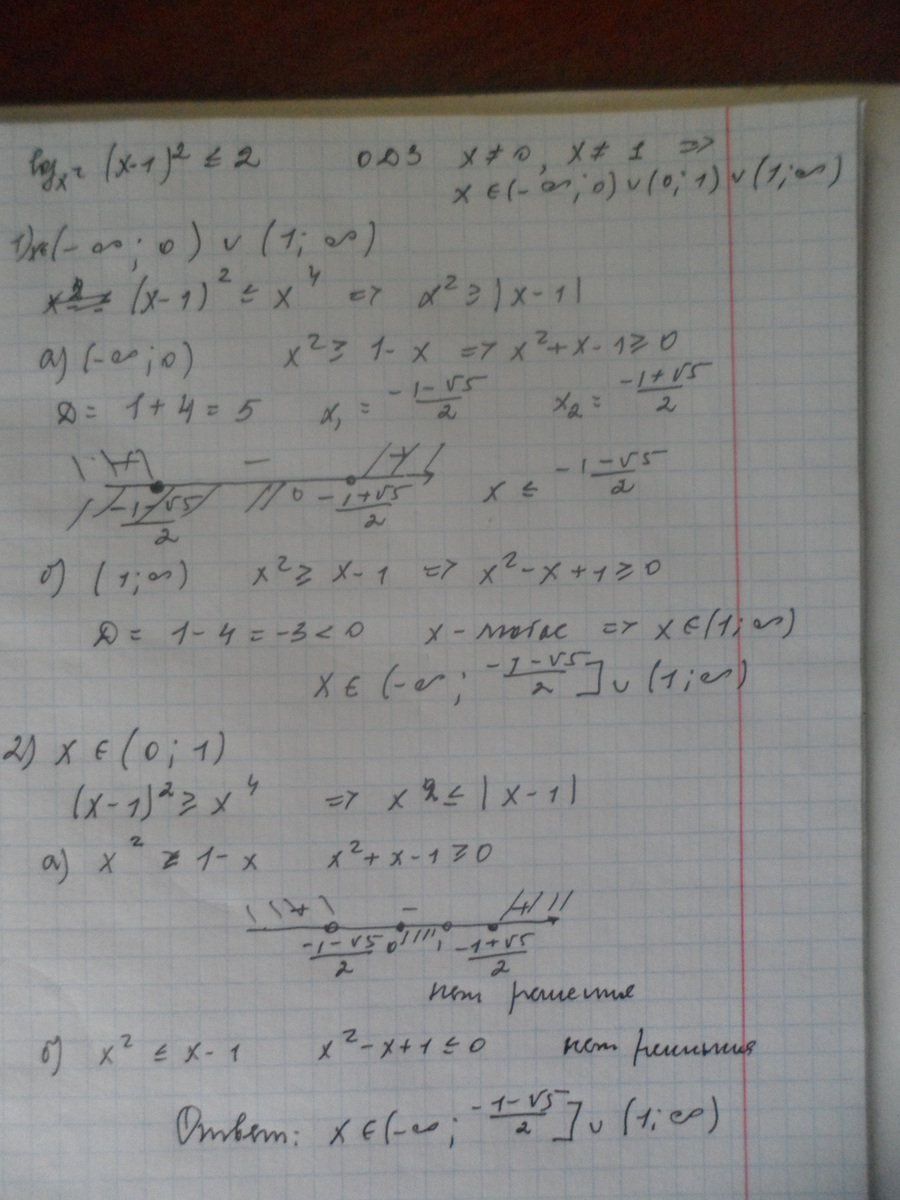 log_{x²} (x-1)² ≤ 2 ОДЗ x ≠ 0, x ≠ 1 =>
x ∈ (-∞; 0) ∪ (0; 1) ∪ (1; ∞)
1) x ∈ (-∞; 0) ∪ (1; ∞)
(x-1)² ≤ x⁴ => x² ≥ |x-1|
а) (-∞; 0) x² ≥ 1-x => x²+x-1 ≥ 0
D = 1+4 = 5 x₁ = (-1-√5)/2 x₂ = (-1+√5)/2
+ - +
(-1-√5)/2 0 (-1+√5)/2 x ≤ (-1-√5)/2
б) (1; ∞) x² ≥ x-1 => x²-x+1 ≥ 0
D = 1-4 = -3 < 0 x - любое => x ∈ (1; ∞)
x ∈ (-∞; (-1-√5)/2] ∪ (1; ∞)
2) x ∈ (0; 1)
(x-1)² ≥ x⁴ => x² ≤ |x-1|
а) x² ≥ 1-x x²+x-1 ≥ 0
+ - +
(-1-√5)/2 0 1 (-1+√5)/2
нет решения
б) x² ≤ x-1 x²-x+1 ≤ 0 нет решения
Ответ: x ∈ (-∞; (-1-√5)/2] ∪ (1; ∞)